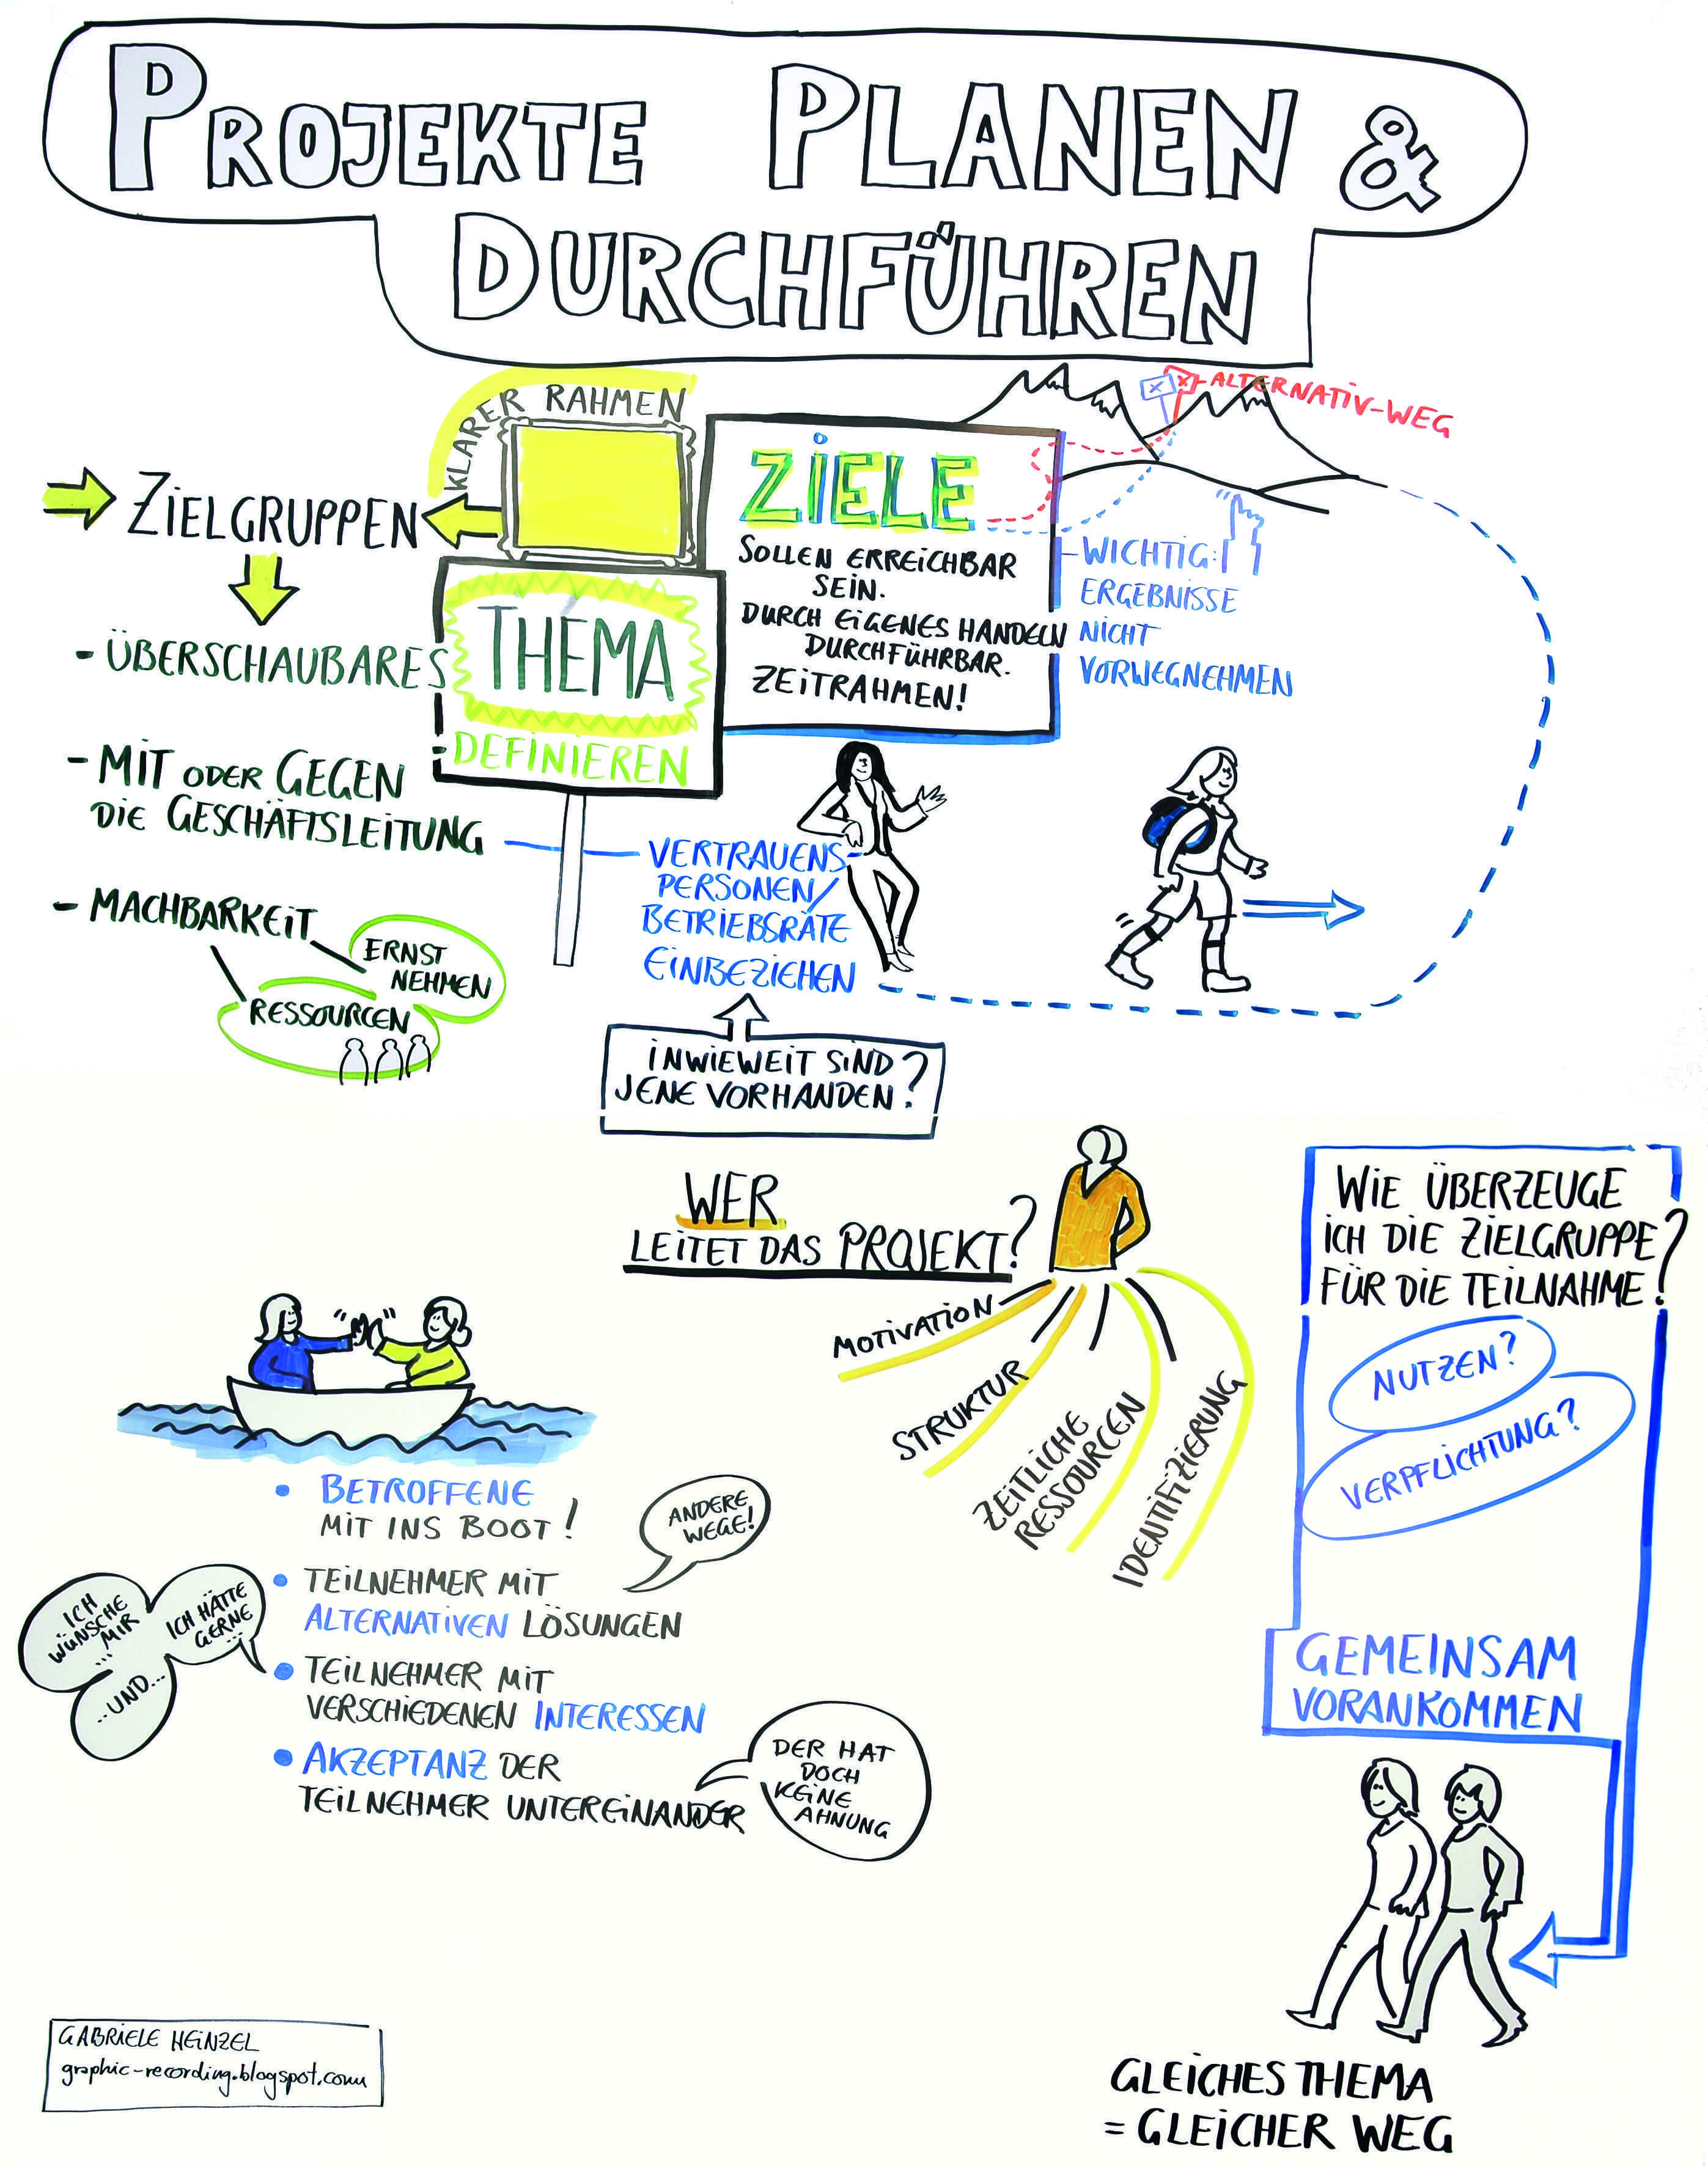 PROJEKTE PLANEN &
DURCHFÜHREN
KLARER RAHMEN
ZIELGRUPPEN
- ÜBERSCHAUBARES
THEMA
- DEFINIEREN
- MIT ODER GEGEN
DIE GESCHÄFTSLEITUNG
- MACHBARKEIT
ERNST
NEHMEN
RESSOURCEN
ZIELE
SOLLEN ERREICHBAR
SEIN.
DURCH EIGENES HANDELN
DURCHFÜHRBAR.
ZEITRAHMEN!
X
X
ALTERNATIV-WEG
WICHTIG:
ERGEBNISSE
NICHT
VORWEGNEHMEN
VERTRAUENS-
PERSONEN/
BETRIEBSRÄTE
EINBEZIEHEN
INWIEWEIT SIND
JENE VORHANDEN?
WER
LEITET DAS PROJEKT?
MOTIVATION
STRUKTUR
ZEITLICHE
RESSOURCEN
IDENTIFIZIERUNG
WIE ÜBERZEUGE
ICH DIE ZIELGRUPPE
FÜR DIE TEILNAHME?
NUTZEN?
VERPFLICHTUNG?
GEMEINSAM
VORANKOMMEN
GLEICHES THEMA
= GLEICHER WEG
• BETROFFENE
MIT INS BOOT!
ANDERE
WEGE!
• TEILNEHMER MIT
ALTERNATIVEN LÖSUNGEN
ICH
WÜNSCHE
MIR
...
ICH HÄTTE
GERNE
...
..UND...
• TEILNEHMER MIT
VERSCHIEDENEN INTERESSEN
• AKZEPTANZ DER
TEILNEHMER UNTEREINANDER
DER HAT
DOCH
KEINE
AHNUNG
GABRIELE HEINZEL
graphic-recording.blogspot.com